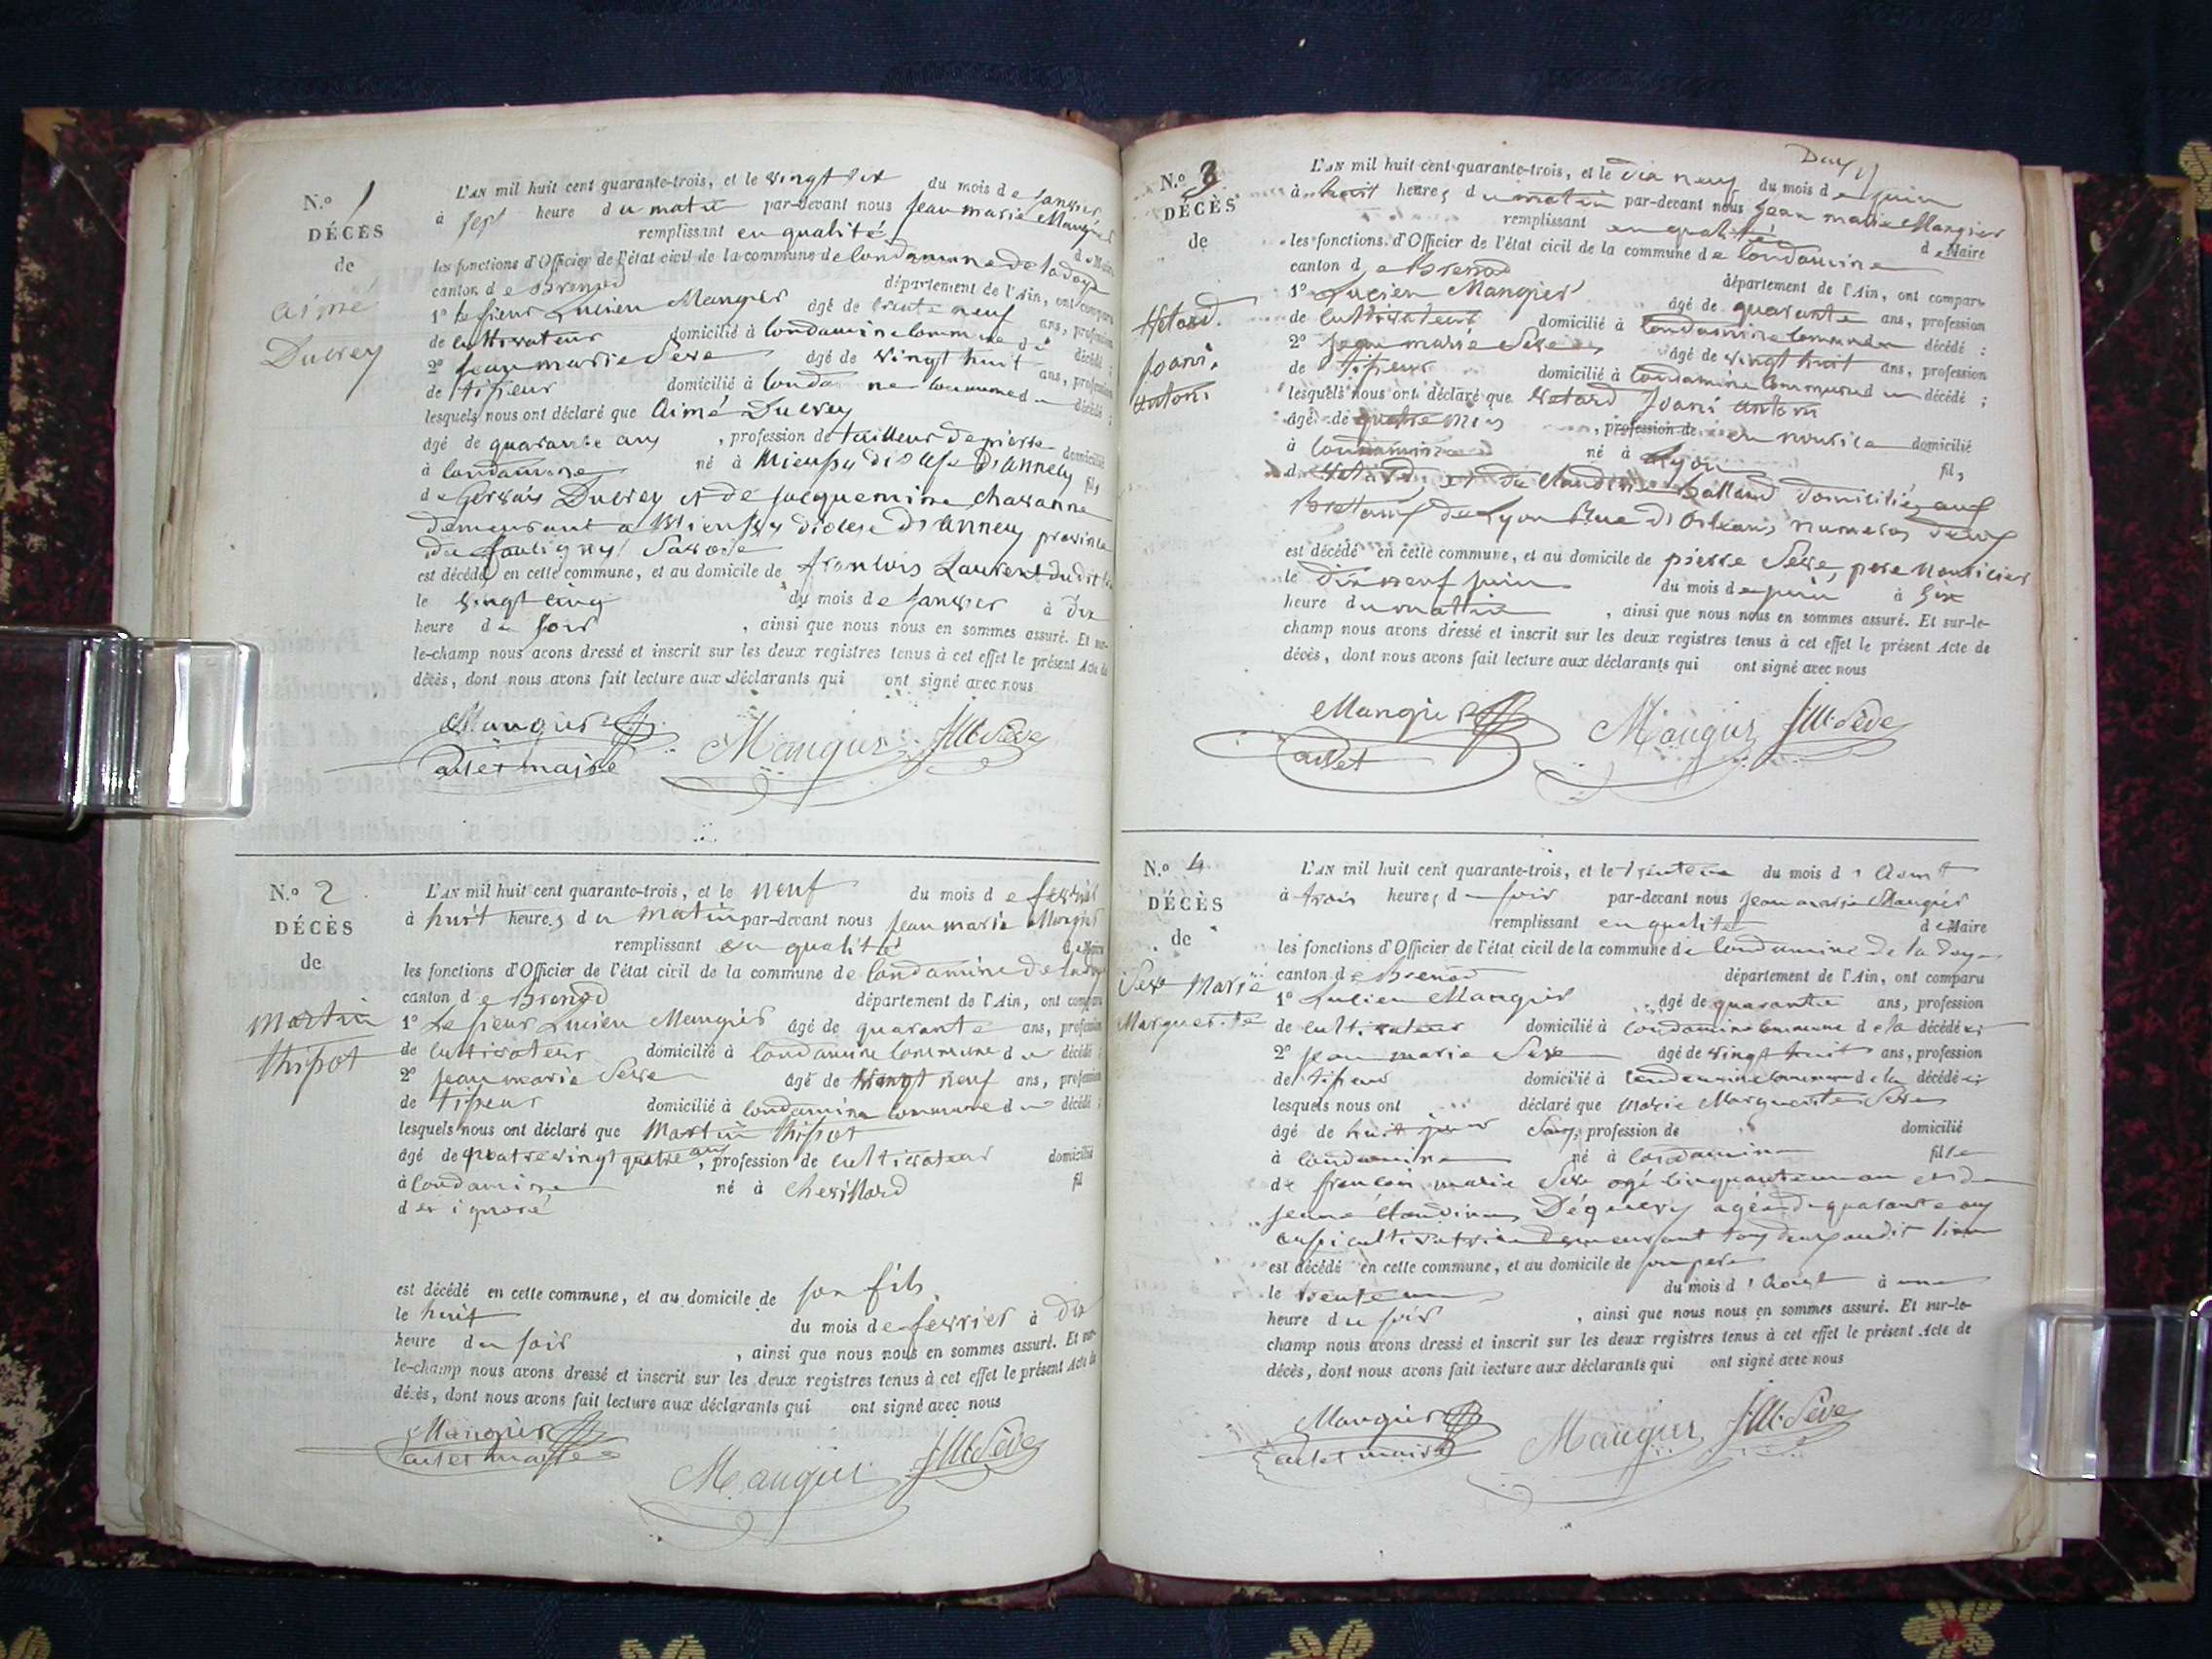 N.º 1
DÉCÈS
de
Aimé
Ducrey
L'AN mil huit cent quarante-trois, et le vingt six du mois de janvier
à sept heure du matin par-devant nous jean marie Mangier
remplissant en qualité de Maire
les fonctions d'Officier de l'état civil de la commune de Condamine de la doye
canton de Brenod département de l'Ain, ont comparu
1º le sieur Lucien Mangier âgé de trente neuf ans, profession
de cultivateur domicilié à Condamine Commune du décédé ;
2º jean marie Seve âgé de vingt huit ans, profession
de tisseur domicilié à Condamine Commune du décédé ;
lesquels nous ont déclaré que Aimé Ducrey
âgé de quarante ans, profession de tailleur de pierre domicilié
à Condamine né à Mieussy diocese d'annecy fils
de Gervais Ducrey et de jacquemine Chavanne
demeurant a Mieussy diocese d'annecy province
du foucigny Savoie
est décédé en cette commune, et au domicile de francois Laurent dudit
le vingt cinq du mois de janvier à dix
heure du soir, ainsi que nous nous en sommes assuré. Et sur-
le-champ nous avons dressé et inscrit sur les deux registres tenus à cet effet le présent Acte de
décès, dont nous avons fait lecture aux déclarants qui ont signé avec nous
Mangier
Mangier JM. Sève
N.º 2
DÉCÈS
de
Martin
thipot
L'AN mil huit cent quarante-trois, et le neuf du mois de fevrier
à huit heures du matin par-devant nous jean marie Mangier
remplissant en qualité de Maire
les fonctions d'Officier de l'état civil de la commune de Condamine de la doye
canton de Brenod département de l'Ain, ont comparu
1º Le sieur Lucien Mangier âgé de quarante ans, profession
de cultivateur domicilié à Condamine Commune du décédé ;
2º jean marie Seve âgé de vingt neuf ans, profession
de tisseur domicilié à Condamine Commune du décédé ;
lesquels nous ont déclaré que Martin thipot
âgé de quatre vingt quatre ans, profession de cultivateur domicilié
à Condamine né à Chevillard fil
de ignoré
est décédé en cette commune, et au domicile de son fils
le huit du mois de fevrier à dix
heure du soir, ainsi que nous nous en sommes assuré. Et sur-
le-champ nous avons dressé et inscrit sur les deux registres tenus à cet effet le présent Acte de
décès, dont nous avons fait lecture aux déclarants qui ont signé avec nous
Mangier
Mangier JM. Sève
N.º 3
DÉCÈS
de
Joani
antoni
L'AN mil huit cent quarante-trois, et le dix neuf du mois de juin
à huit heures du matin par-devant nous jean marie Mangier
remplissant en qualité de Maire
les fonctions d'Officier de l'état civil de la commune de Condamine
canton de Brenod département de l'Ain, ont comparu
1º Lucien Mangier âgé de quarante ans, profession
de cultivateur domicilié à Condamine Commune du décédé ;
2º jean marie Seve âgé de vingt huit ans, profession
de tisseur domicilié à Condamine Commune du décédé ;
lesquels nous ont déclaré que Joani antoni
âgé de quatre mois, profession de en nourice domicilié
à Condamine né à Lyon fils
de et de Claudine Balland domiciliés aux
Brottaux de Lyon Rue d'Orleans numeros deux
est décédé en cette commune, et au domicile de pierre Seve, pere nouricier
le dix neuf juin du mois de juin à six
heure du matin, ainsi que nous nous en sommes assuré. Et sur-le-
champ nous avons dressé et inscrit sur les deux registres tenus à cet effet le présent Acte de
décès, dont nous avons fait lecture aux déclarants qui ont signé avec nous
Mangier
Mangier JM. Sève
N.º 4
DÉCÈS
de
Seve Marie
Marguerite
L'AN mil huit cent quarante-trois, et le trente un du mois d'Aout
à trois heures du soir par-devant nous jean marie Mangier
remplissant en qualité de Maire
les fonctions d'Officier de l'état civil de la commune de Condamine de la doye
canton de Brenod département de l'Ain, ont comparu
1º Lucien Mangier âgé de quarante ans, profession
de cultivateur domicilié à Condamine Commune de la décédée
2º jean marie Seve âgé de vingt huit ans, profession
de tisseur domicilié à Condamine Commune de la décédée
lesquels nous ont déclaré que Marie Marguerite Seve
âgé de huit jour Sans profession de domicilié
à Condamine né à Condamine fille
de francois marie Seve agé cinquante un an et de
jeanne Claudine agée de quarante ans
aussi cultivatrice demeurant tous deux audit lieu
est décédé en cette commune, et au domicile de son pere
le trente un du mois d'Aout à une
heure du soir, ainsi que nous nous en sommes assuré. Et sur-le-
champ nous avons dressé et inscrit sur les deux registres tenus à cet effet le présent Acte de
décès, dont nous avons fait lecture aux déclarants qui ont signé avec nous
Mangier
Mangier JM. Sève